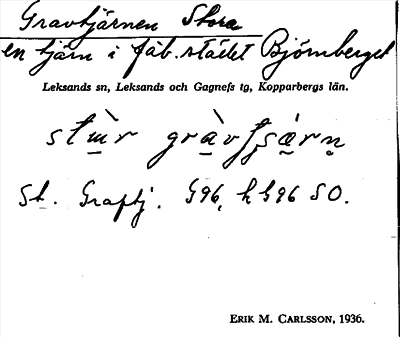 Gravtjärnen Stora
en tjärn i fäb.stället Björnberget
Leksands sn, Leksands och Gagnefs tg, Kopparbergs län.
St. Graftj. G96, h G96 SO.
ERIK M. CARLSSON, 1936.